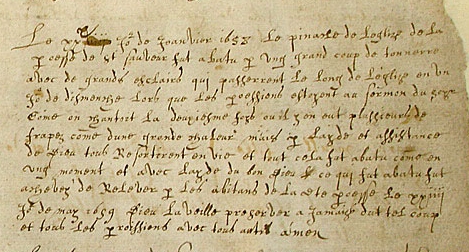 Le xx Jo de Janvier 1658 Le pinacle de Leglize de La
p cesse de st sauveur fut abatu p ung grand coup de tonnerre
avec de grands esclairs qui passerent Le Long de Leglize en un
Jo de dismenche Lors que Les p essiens estoyent au sermon du
Come on chantit La deuxiesme foys ou il y en eut plusieurs de
frapez come dune grande chaleur mais p Layde et assistance
de dieu tous Resortirent en vie et tout cela fut abatu come en
ung moment et avec Layde du bon dieu ce qui fut abatu fut
achevez de Relever p Les abitans de La p cesse Le xxiiij
Jo de may 1659 dieu La veille preserver a Jamais du tel coup
et tous Les p roissiens avec tous autres amen